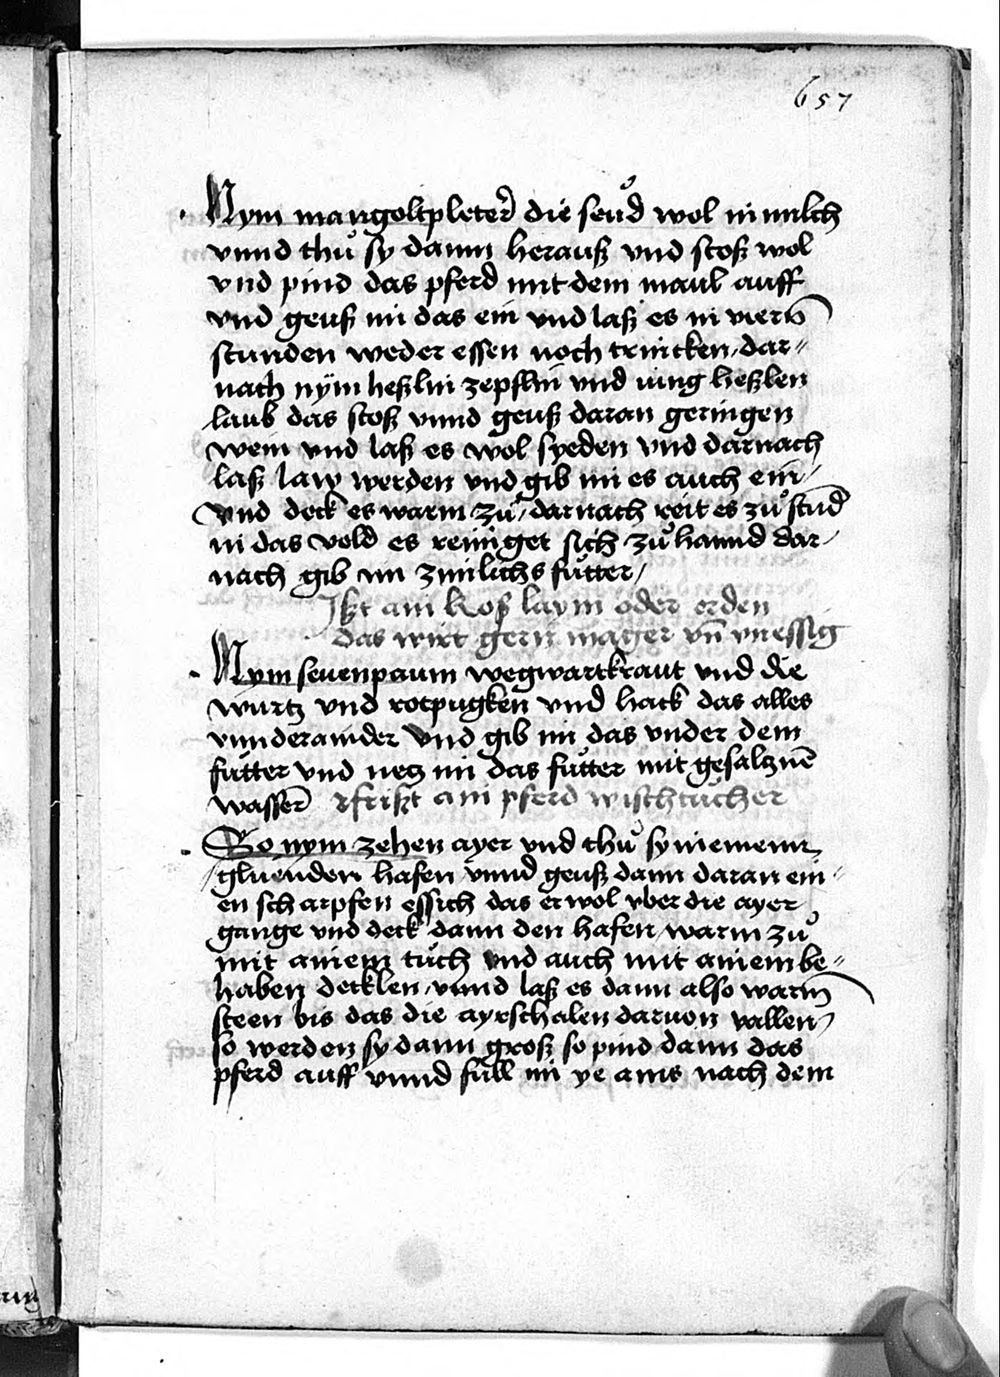 657
Nym mangoltpleter die seud wol in milch
vnnd thů sy dann herauß vnd stoß wol
vnd pind das pferd mit dem maul auff
vnd geuß im das ein vnd laß es in viern
stunden weder essen noch trincken, dar-
nach nÿm heßlin zepflin vnd iung heßlen
laub das stoß vnnd geuß daran geringen
wein vnd laß es wol syeden vnd darnach
laß law werden vnd gib im es auch ein /
Vnd deck es warm zů / darnach reit es zů stund
in das veld es reiniget sich zů hannd dar /
nach gib im zimlichs fůtter /
Ißt ain Roß laym oder erden
das wirt gern mager vn̄ vnessig
Nym seuenpaum wegwartkraut vnd die
wurtz vnd rotpugken vnd hack das alles
vnnderainder Vnd gib im das vnder dem
fůtter vnd netz im das fůtter mit gesaltznē
wasser frißt ain pferd wischtůcher
So nym zehen ayer vnd thů sy in ewenn
gluenden hafen vnnd geuß dann daran ein-
en scharpfen essich das er wol vber die ayer
gange vnd deck dann den hafen warm zů
mit ainem tůch vnd auch mit ainem be-
haben decklen vnnd laß es dann also warm
steen bis das die ayrschalen daruon vallen /
so werden sy dann groß so pind dann das
pferd auff vnnd füll im ye ains nach dem